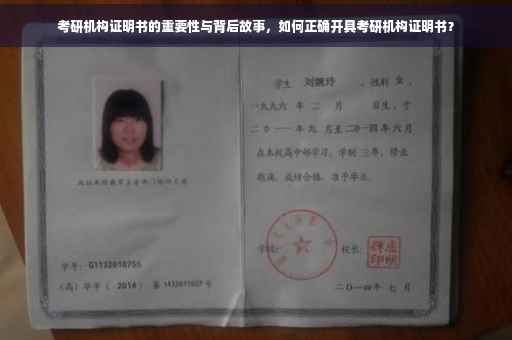 考研机构证明书的重要性与背后故事，如何正确开具考研机构证明书？
学生 刘婉玲 ，性别 女 ，
一九九六 年 二 月 日生，于
二〇一一 年 九 月至二〇一四年 六 月
在本校高中部学习，学制 三 年，修业
期满，成绩合格，准予毕业。
学号：G1132010755
（高）毕字（ 2014 ）第 1432011027 号
学校：
校长：
二〇一四年 七 月